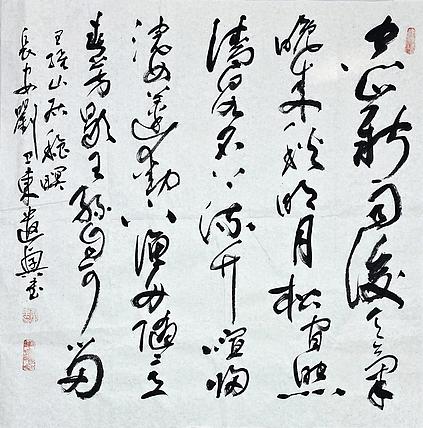 空山新雨後天氣
晚來秋明月松間照
清泉石上流竹喧歸
浣女蓮動下漁舟隨意
春芳歇王孫自可留
王維山居秋暝
長安劉卫東遣興書